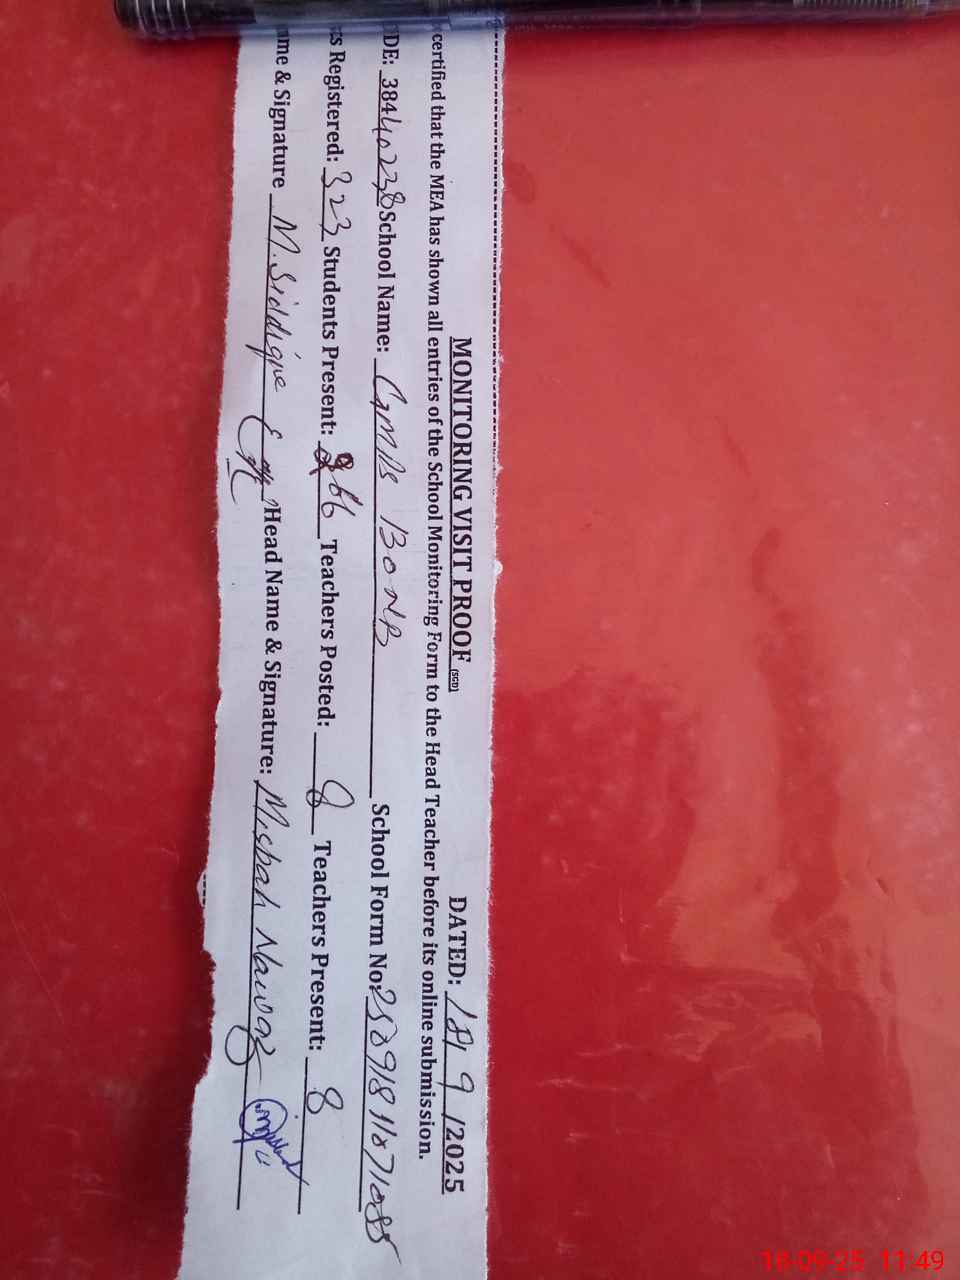 MONITORING VISIT PROOF (SGD) DATED: 18/ 9 /2025
certified that the MEA has shown all entries of the School Monitoring Form to the Head Teacher before its online submission.
DE: 38440238 School Name: GMPS 130 NB School Form No:
ts Registered: 323 Students Present: 266 Teachers Posted: 8 Teachers Present: 8
me & Signature M. Siddique Head Name & Signature: Misbah Nawaz
18-09-25 11:49